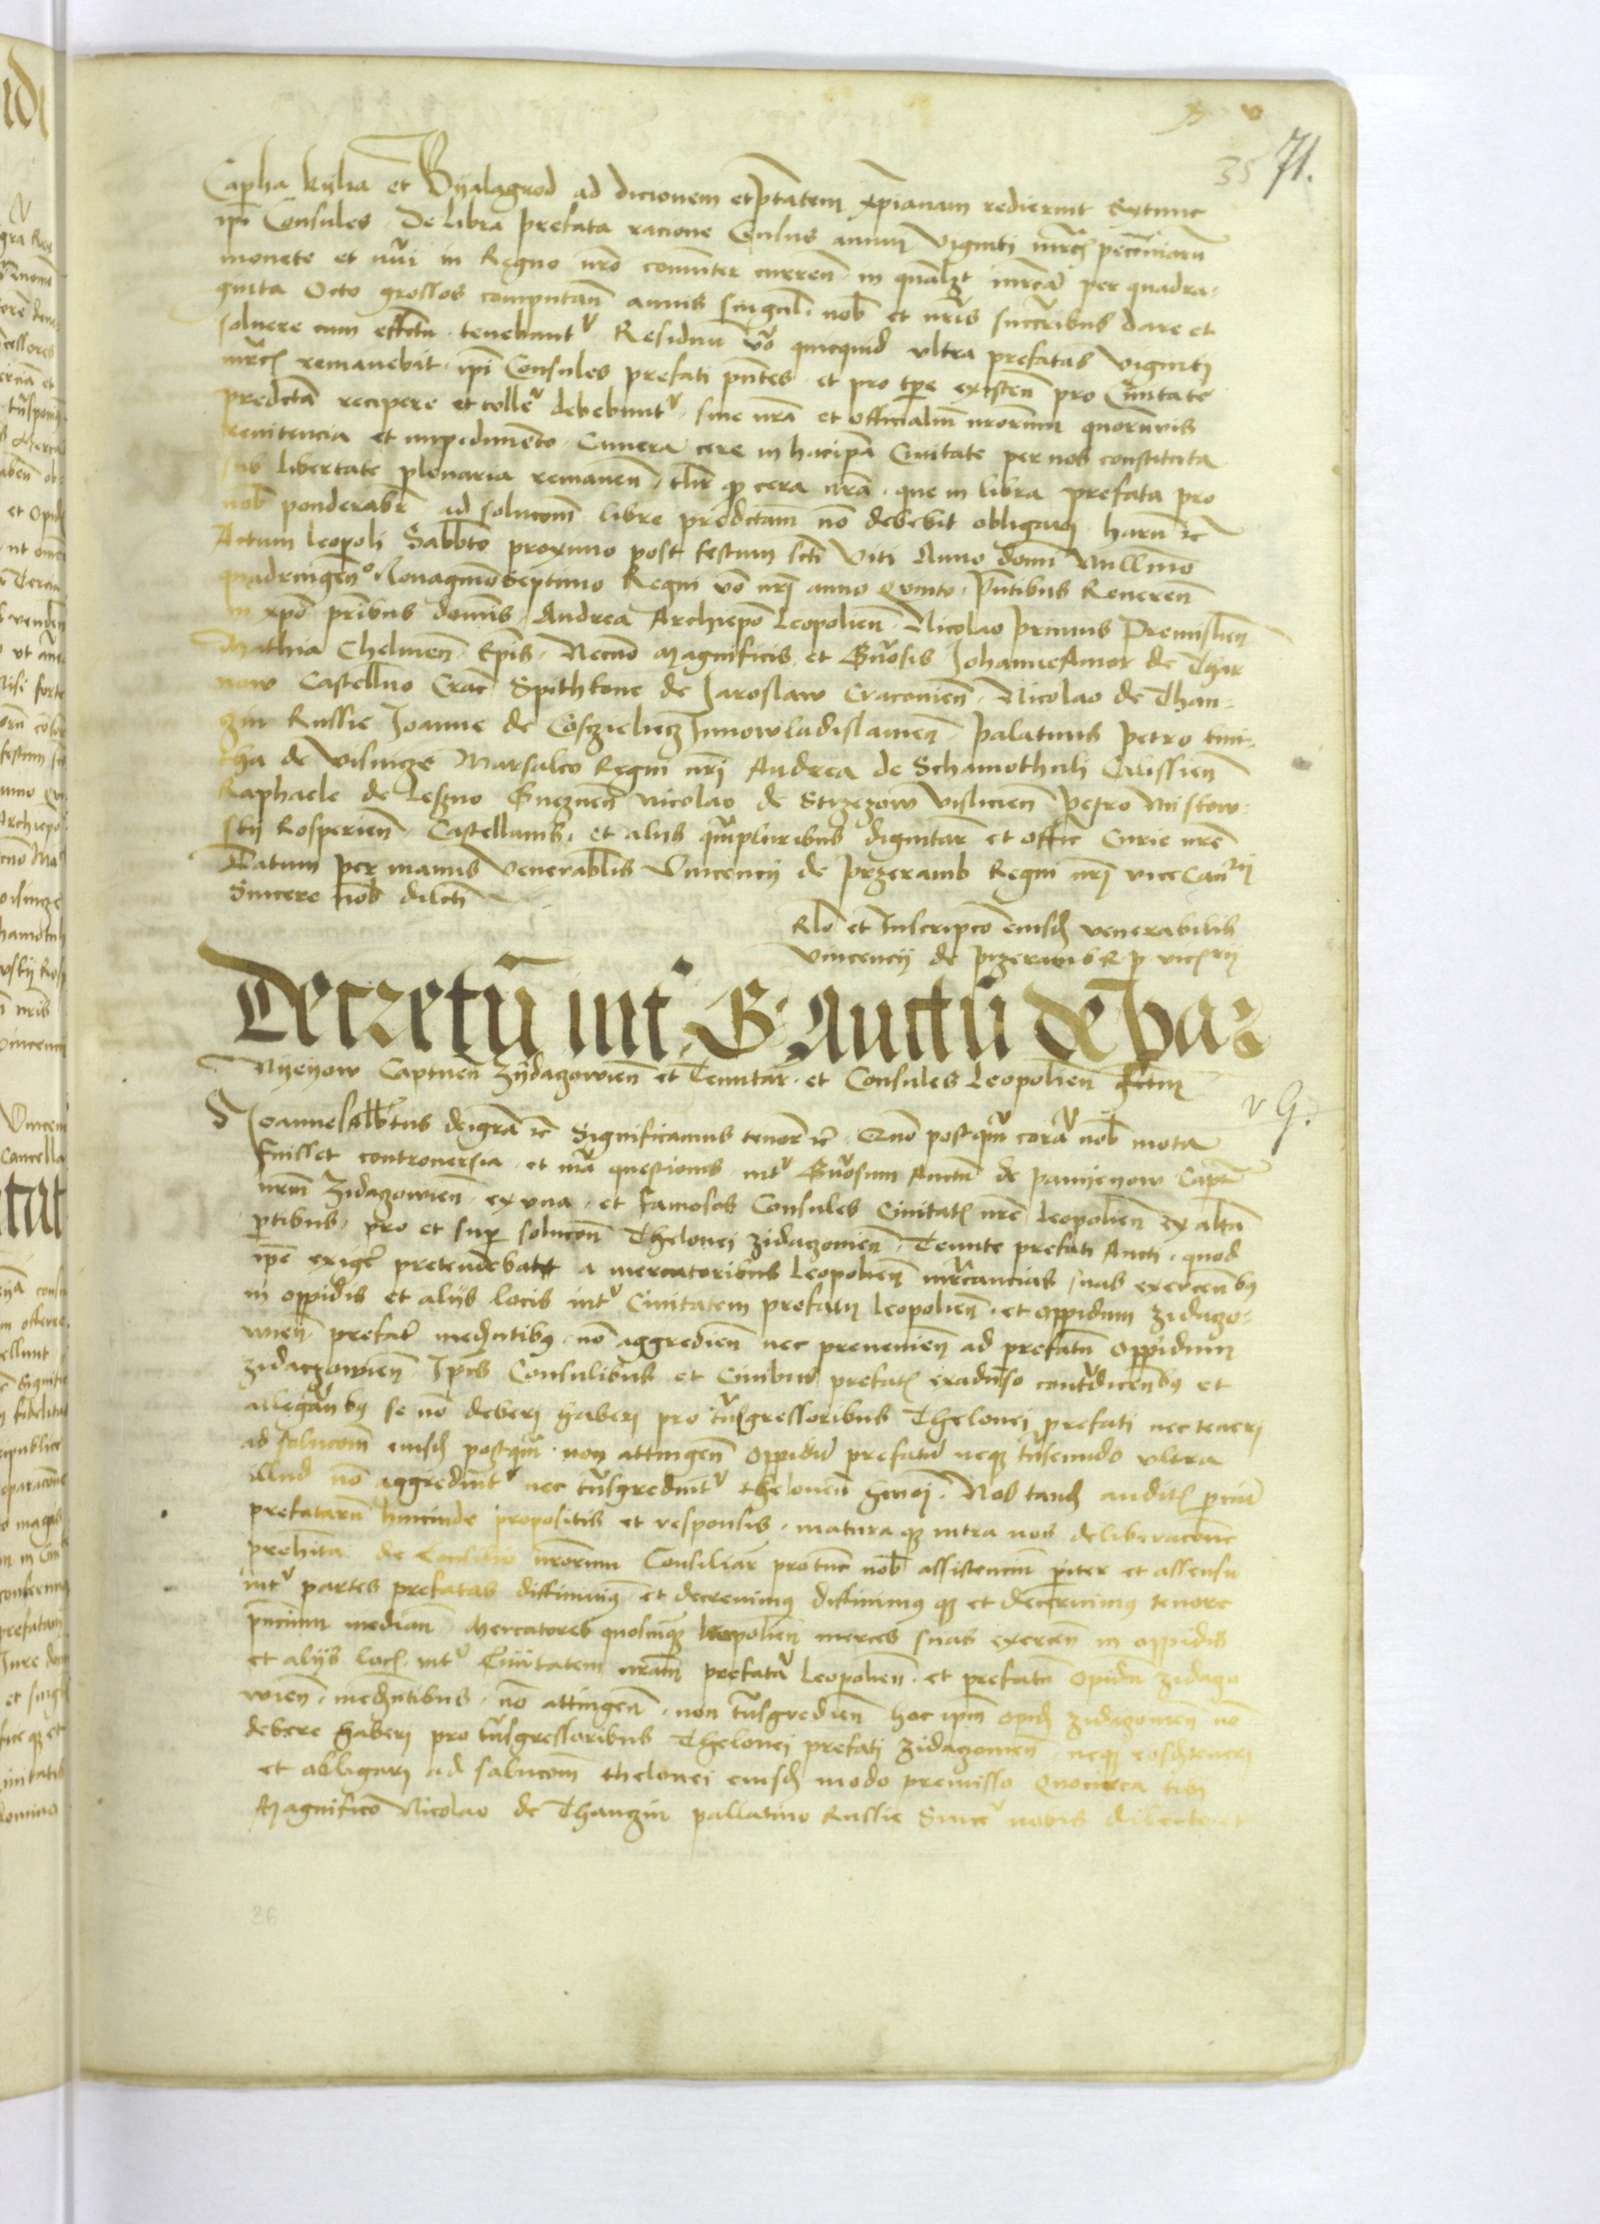 35 71.
Capha kylia et Byalagrod ad dicionem et ptatem xpianam redierint Extunc
ipi Consules De libra prefata racione Census annui viginti mrcas pecuniaru
monete et nui in Regno nro comuniter curren in qualzt mrca per quadra-
ginta Octo grossos computan annis singul nob et nris succribus dare et
soluere cum effectu tenebunt Residuu vo quicquid vltra prefatas viginti
mrcas remanebit ipi Consules prefati pntes et pro tpe existen pro Ciuitate
predicta recipere et colle debebunt sine nra et officialiu nrorum quoruuis
renitencia et impedimento Camera cere in hac ipa Ciuitate per nos constituta
sub libertate plenaria remanen tlr qp cera nra que in libra prefata pro
nob ponderabr ad solucom libre predictam no debebit obligari haru rc
Actum leopoli Sabbto proximo post festum scti viti Anno domi Millimo
quadringen Nonagmo Septimo Regni vo nri anno quinto pntibus Reueren
in xpo pribus domis Andrea Archiepo Leopolien Nicolao primus Premislien
Mathia Chelmen Epis Necno Magnificis et Gnosis Johanne Amor de Thar
now Castellno Crac Spithkone de Jaroslaw Cracouien Nicolao de Than-
zin Russie Joanne de Cosczieliecz Junowladislauien palatinis petro kmi-
tha de visnicze Marsalco Regni nri Andrea de Schamothuli Calissien
Raphaele de Leszno Gneznen Nicolao de Strzezow vislicien petro Miskow-
sky Rosperien Castellanis et alys qmpluribus dignitar et offic Curie nre
Datum per manus venerablis Vincency de przeramb Regni nri vice Can
Sincere nob dilcti
Rlo et Inscripco eiusd venerabilis
Vincencij de przeramb R p vice
Decretu int G Auctu de pa
Nyeyow Captuen zydagowien et Tenutar et Consules Leopolien fctm
Joannes Albtus dei gra rc Significamus tenore rc Quo postqm cora nob mota
fuisset controuersia et ma questionis int Gnosum Auctu de pannyeyow Capt
nrm zidagowien ex vna et famosos Consules Ciuitatis nre Leopolien ex alta
ptibus pro et sup solucom Thelonei zidagouien Tenute prefati Aucti quod
ipe exiger pretendebat a mercatoribus Leopolien mrcancias suas exercenbus
in oppidis et alijs locis int Ciuitatem prefatam leopolien et oppidum zidago-
wien prefat medntibus no aggredien nec preuenien ad prefatu oppidum
zidaczowien Ipis Consulibus et Ciuibus prefatis ex aduso contradicenbus et
alleganbus se no deberi haberi pro tnsgressoribus Thelonei prefati nec teneri
ad solucom eiusd postqm non attingen oppidu prefatu neque tnseundo vltra
illud no aggrediunt nec tnsgrediunt theloneu Nos tande auditis
prefataru hincinde propositis et responsis matura que intra nos deliberacone
prehita de Consilio nrorum Consiliar pro tunc nob assistencium pariter et assensu
int partes prefatas diffiniuimus et decreuimus diffinimus que et decernimus tenore
pncium median Mercatores quoscunque leopolien merces suas exercen in oppidis
et alijs locis int Ciuitatem nram prefata Leopolien et prefatu opidu zidago
wien medntibus no attingen non tnsgredien hoc ipm opid zidagouien no
debere haberi pro tnsgressoribus Thelonei prefati zidagouien neque eosd teneri
et obligari ad solucom thelonei eiusd modo premisso Quocirca tibi
Magnifico Nicolao de Thanczin pallatino Russie Since nobis dilecto et
36